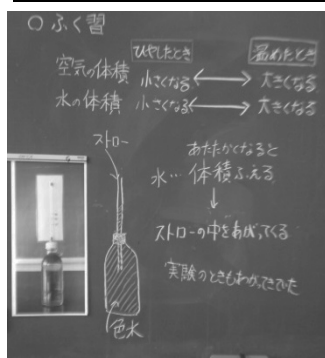 ○ふく習
ひやしたとき 温めたとき
空気の体積 小さくなる ←→ 大きくなる
水の体積 小さくなる ←→ 大きくなる
ストロー
あたたかくなると
水…体積ふえる
↓
ストローの中をあがってくる
実験のときもあがってきていた
色水